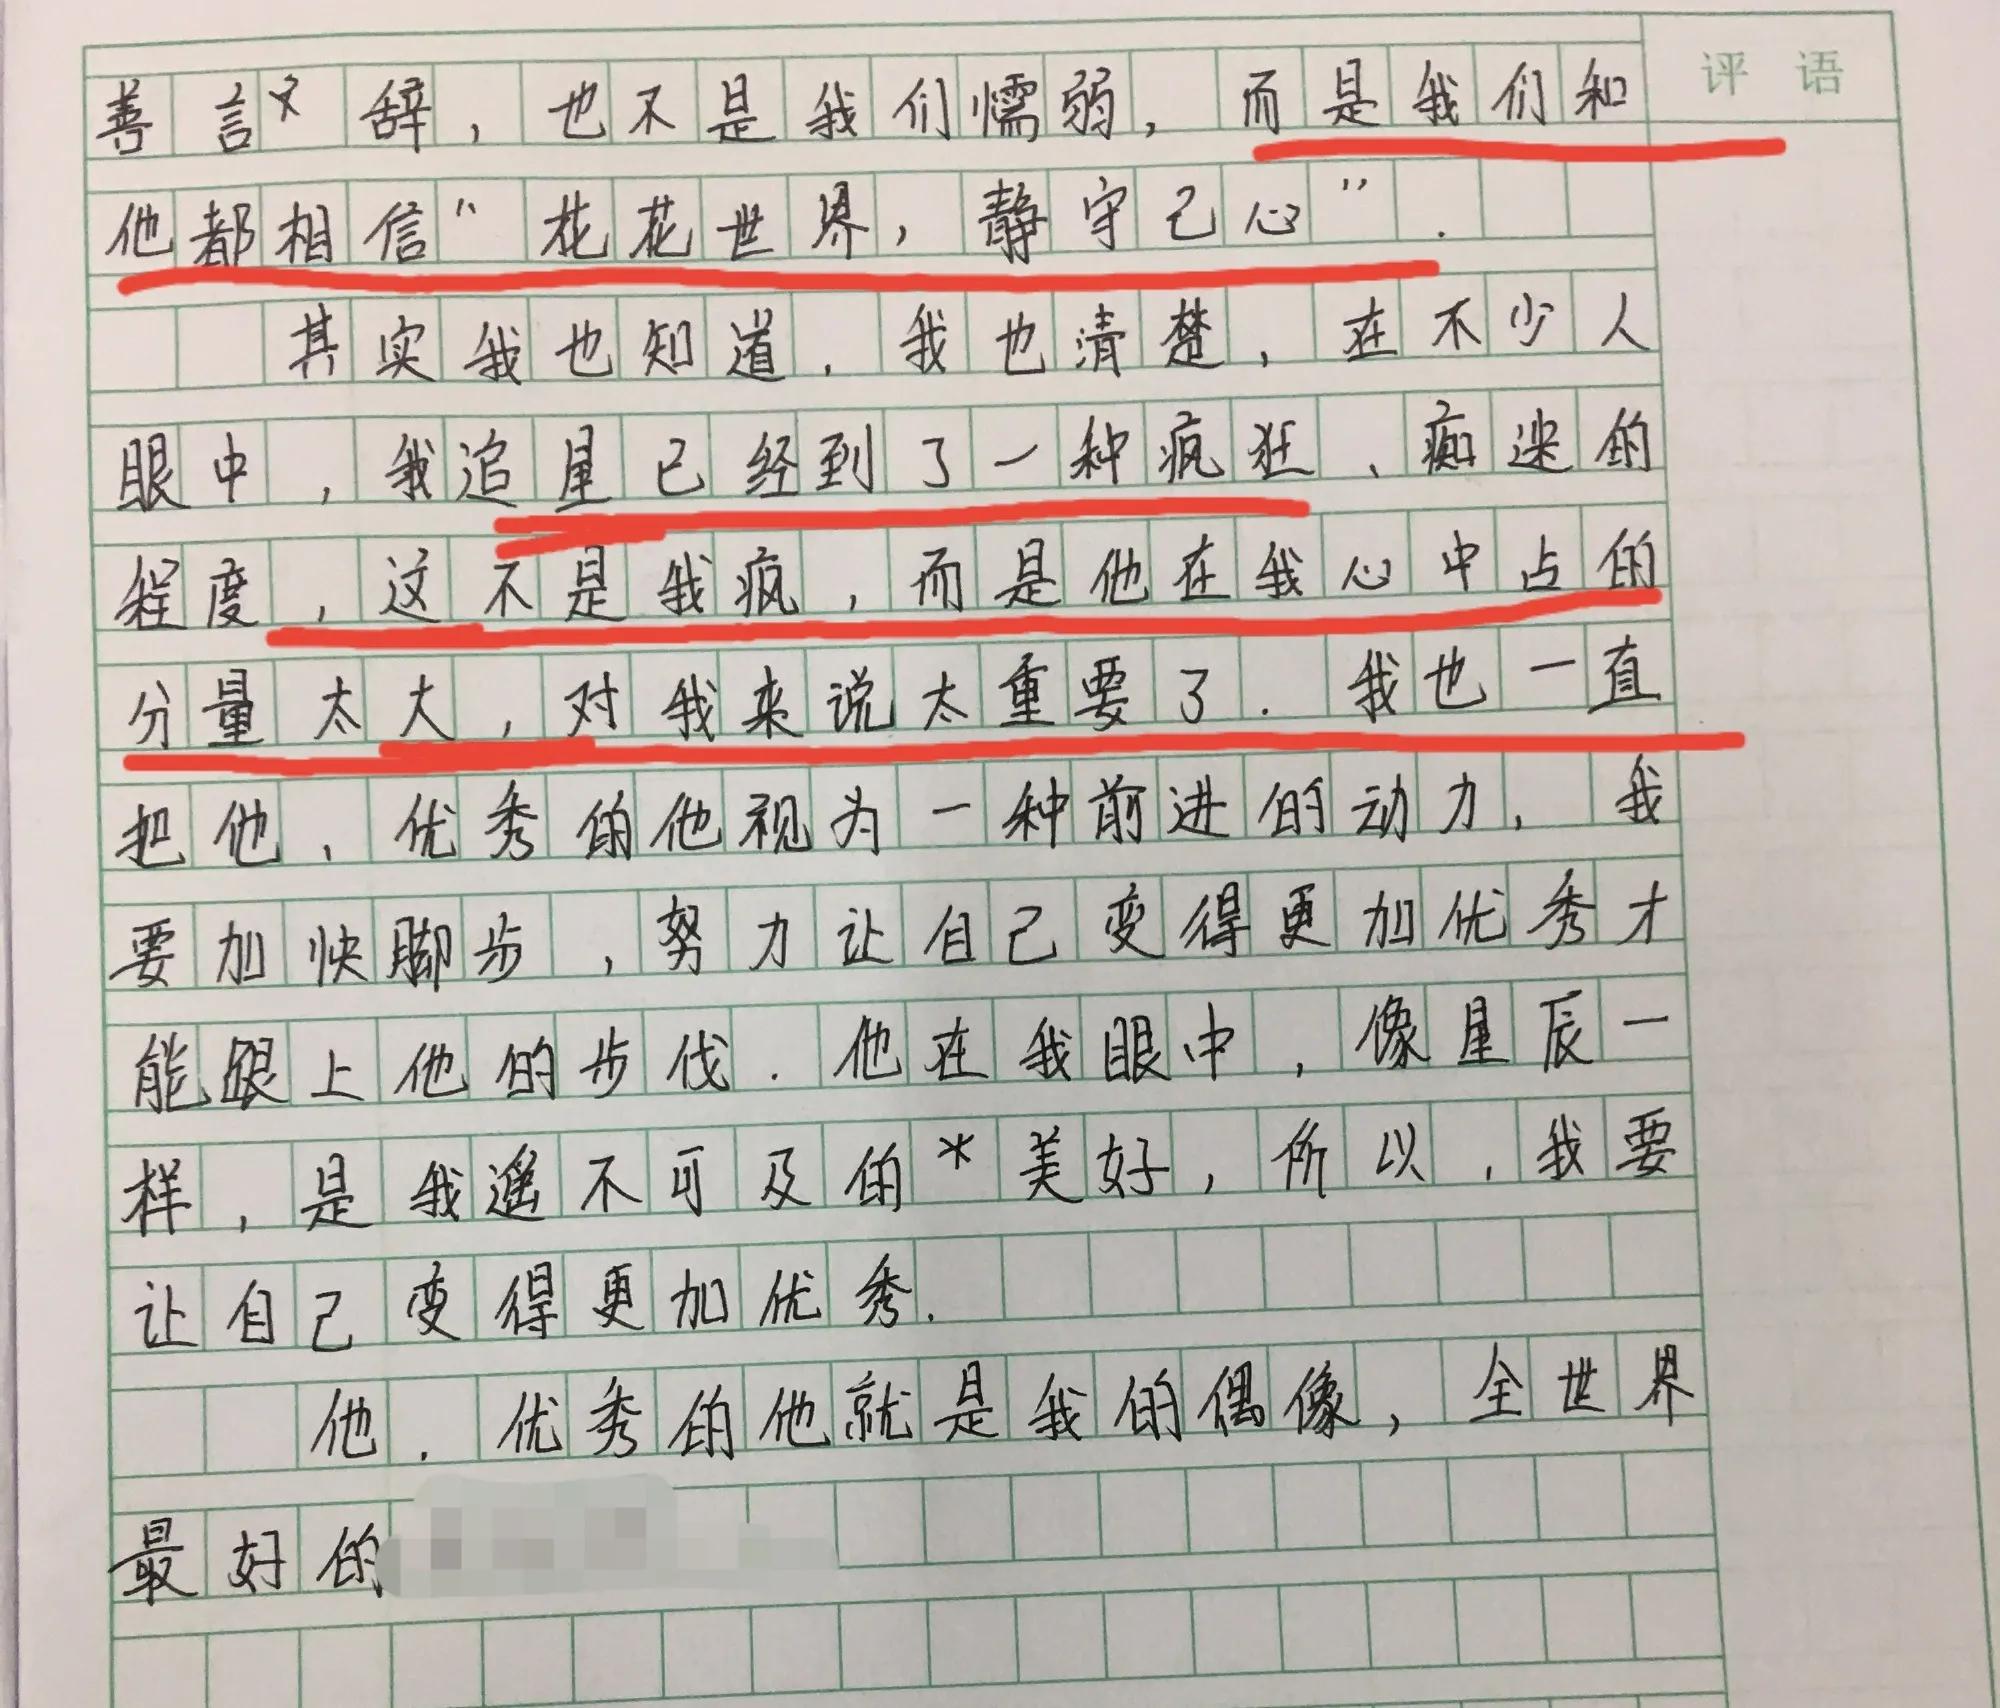 善言辞，也不是我们懦弱，而是我们和
评语
他都相信“花花世界，静守己心”.
其实我也知道.我也清楚，在不少人
眼中，我追星已经到了一种疯狂、痴迷的
程度，这不是我疯，而是他在我心中占的
分量太大，对我来说太重要了.我也一直
把他，优秀的他视为一种前进的动力，我
要加快脚步，努力让自己变得更加优秀才
能跟上他的步伐.他在我眼中，像星辰一
样，是我遥不可及的*美好，所以，我要
让自己变得更加优秀.
他.优秀的他就是我的偶像，全世界
最好的